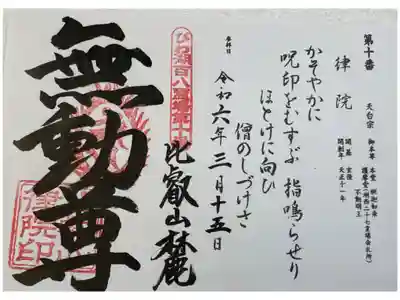 第十番
律院
天台宗
御本尊
本堂 釈迦如来
護摩堂（明西二十七霊場自米所）
不動明王
開基 玄俊
開創年 天正十一年
かそやかに
呪印をむすぶ 指鳴らせり
ほとけに向ひ
僧のしづけさ
参拝日
令和六年三月十五日
びわ湖百八霊場第十番
比叡山麓
無動尊
律院印